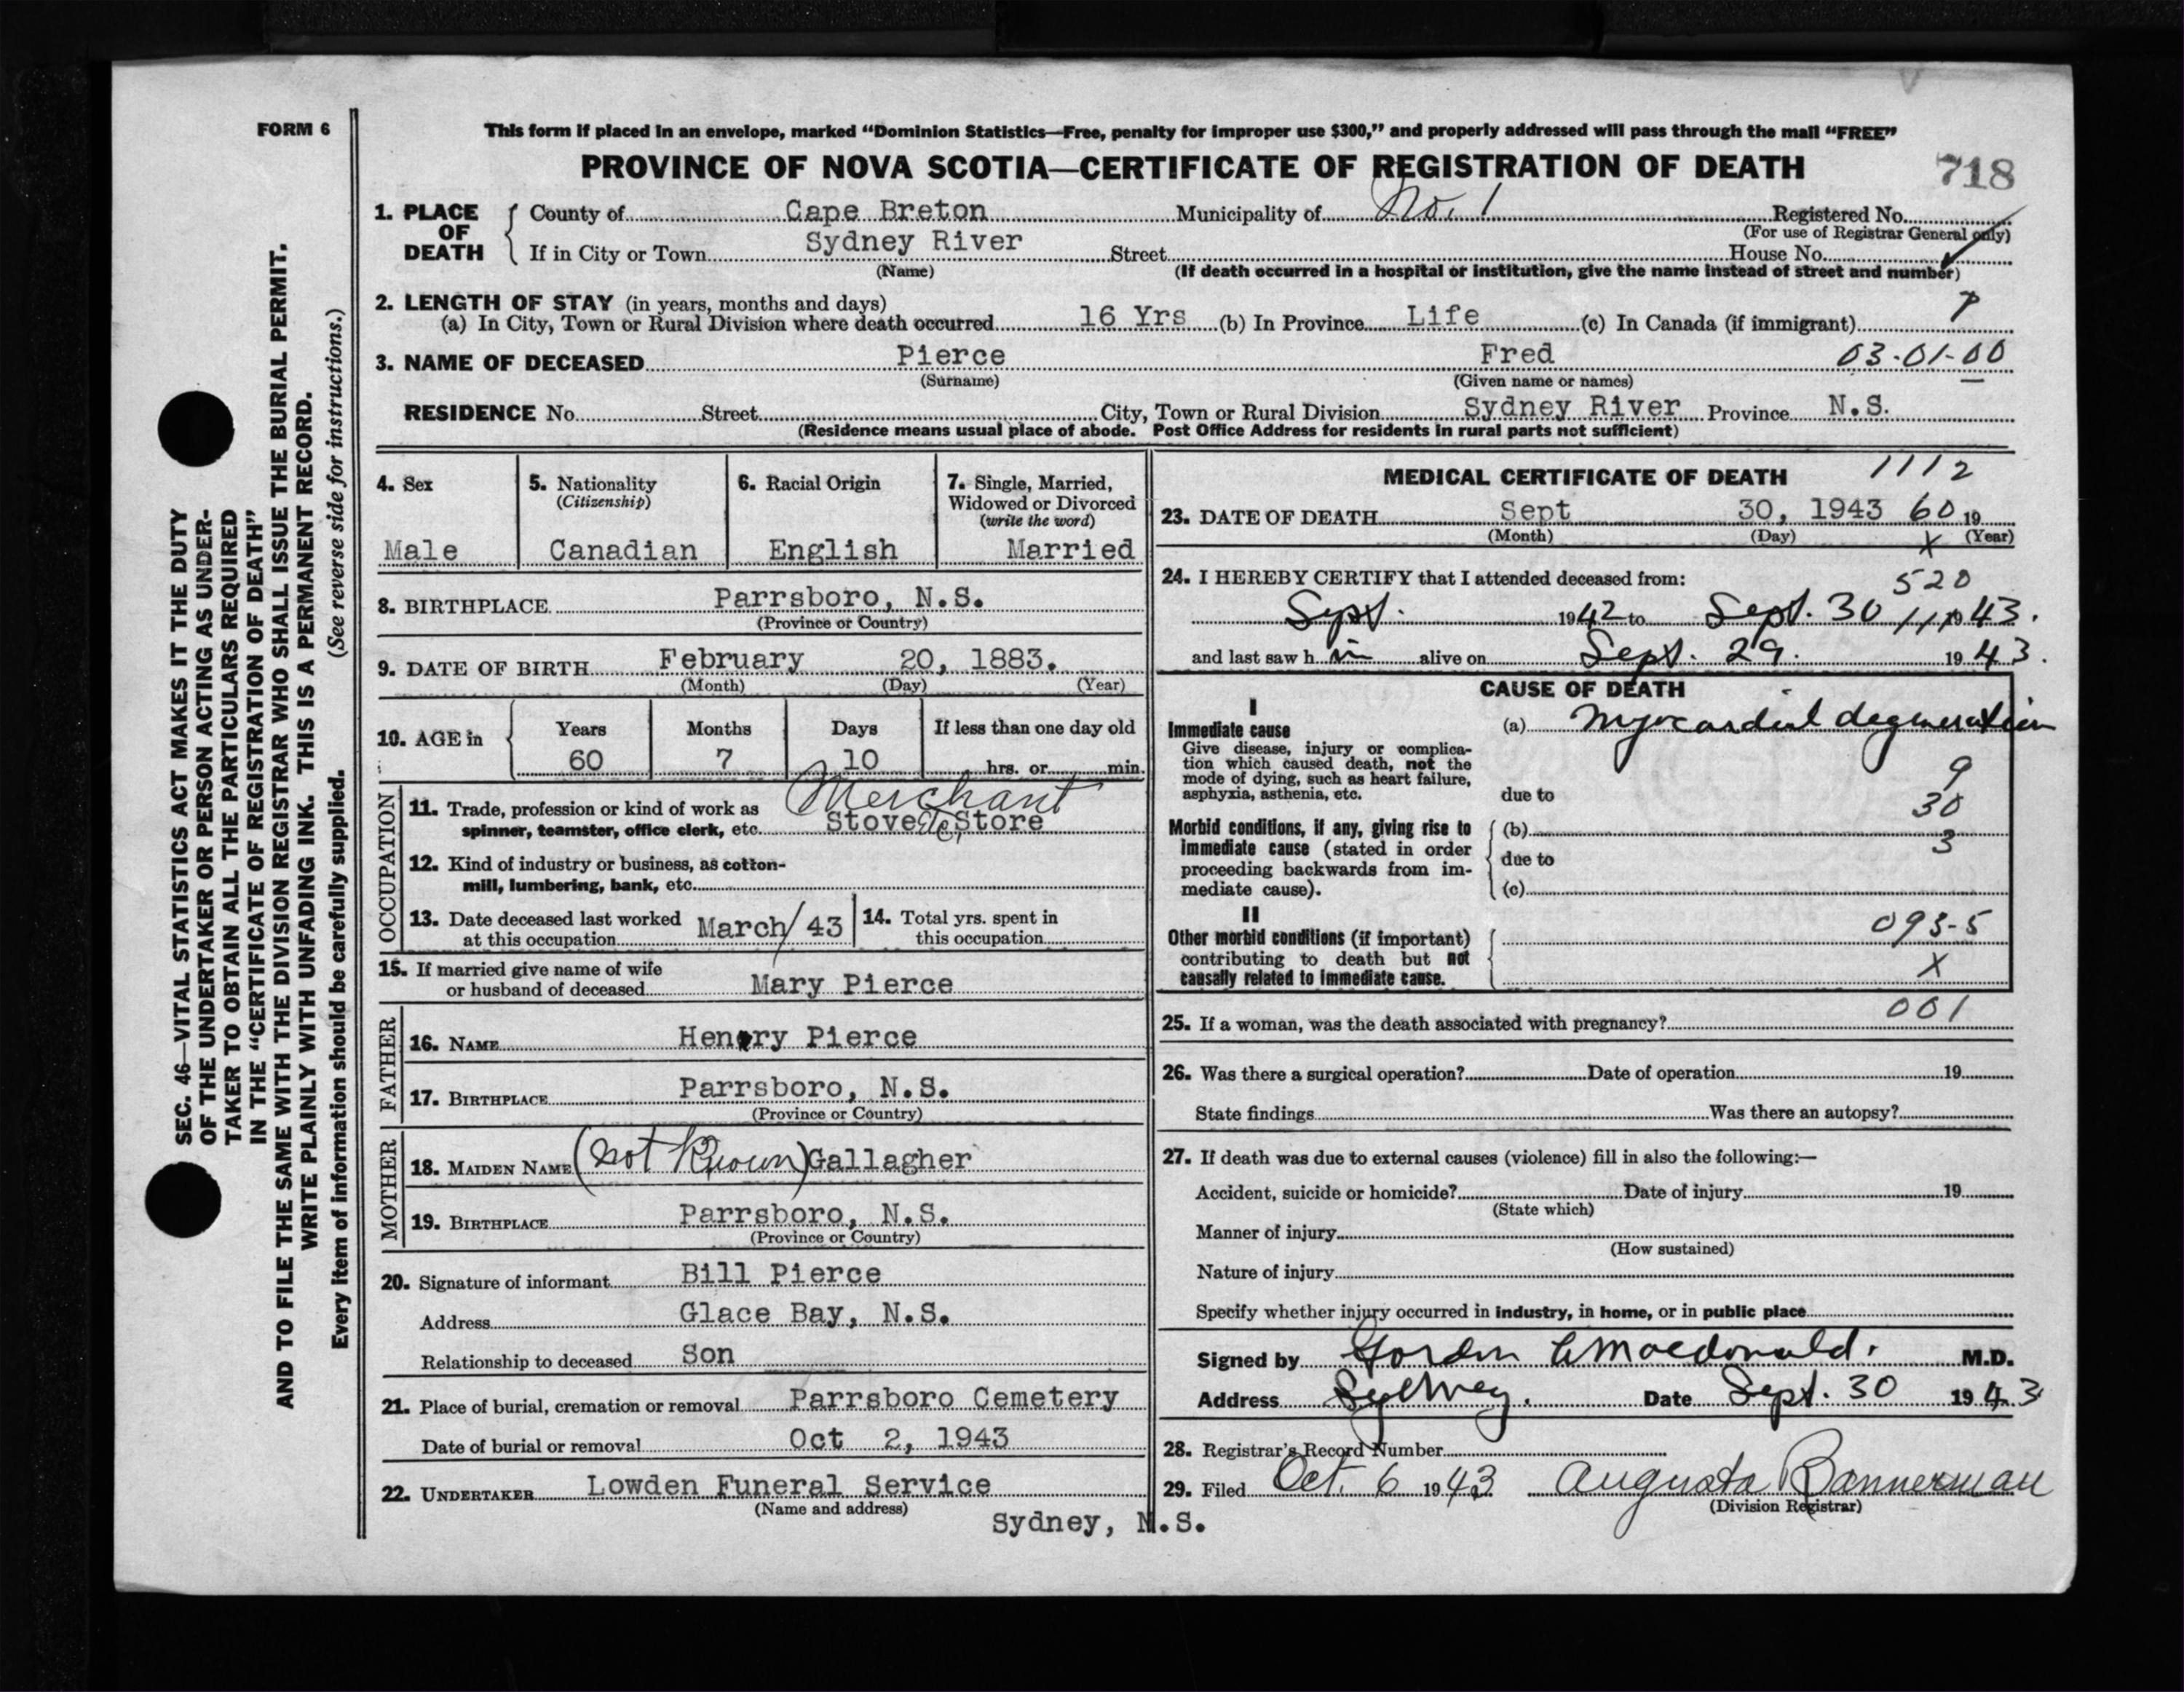 FORM 6
This form if placed in an envelope, marked “Dominion Statistics—Free, penalty for improper use $300,” and properly addressed will pass through the mail “FREE”
PROVINCE OF NOVA SCOTIA—CERTIFICATE OF REGISTRATION OF DEATH
718
1. PLACE OF DEATH
County of Cape Breton Municipality of No. 1 Registered No.
(For use of Registrar General only)
If in City or Town Sydney River Street House No.
(Name) (If death occurred in a hospital or institution, give the name instead of street and number)
2. LENGTH OF STAY (in years, months and days)
(a) In City, Town or Rural Division where death occurred 16 Yrs (b) In Province Life (c) In Canada (if immigrant)
3. NAME OF DECEASED Pierce Fred 03-01-00
(Surname) (Given name or names)
RESIDENCE No. Street City, Town or Rural Division Sydney River Province N.S.
(Residence means usual place of abode. Post Office Address for residents in rural parts not sufficient)
4. Sex
Male
5. Nationality
(Citizenship)
Canadian
6. Racial Origin
English
7. Single, Married,
Widowed or Divorced
(write the word)
Married
8. BIRTHPLACE Parrsboro, N.S.
(Province or Country)
9. DATE OF BIRTH February 20, 1883.
(Month) (Day) (Year)
10. AGE in
Years Months Days If less than one day old
60 7 10 hrs. or min.
OCCUPATION
Merchant
11. Trade, profession or kind of work as
spinner, teamster, office clerk, etc. Stove etc Store
12. Kind of industry or business, as cotton-
mill, lumbering, bank, etc.
13. Date deceased last worked
at this occupation March/43
14. Total yrs. spent in
this occupation
15. If married give name of wife
or husband of deceased Mary Pierce
FATHER
16. NAME Henry Pierce
17. BIRTHPLACE Parrsboro, N.S.
(Province or Country)
MOTHER
18. MAIDEN NAME (not Known) Gallagher
19. BIRTHPLACE Parrsboro, N.S.
(Province or Country)
20. Signature of informant Bill Pierce
Address Glace Bay, N.S.
Relationship to deceased Son
21. Place of burial, cremation or removal Parrsboro Cemetery
Date of burial or removal Oct 2, 1943
22. UNDERTAKER Lowden Funeral Service
(Name and address)
Sydney, N.S.
MEDICAL CERTIFICATE OF DEATH
1112
23. DATE OF DEATH Sept 30, 1943 60 19
(Month) (Day) (Year)
X
24. I HEREBY CERTIFY that I attended deceased from:
520
Sept. 1942 to Sept. 30 111 1943.
and last saw h im alive on Sept. 29. 1943.
CAUSE OF DEATH
I
Immediate cause
Give disease, injury or complica-
tion which caused death, not the
mode of dying, such as heart failure,
asphyxia, asthenia, etc.
(a) Myocardial degeneration
9
due to
30
Morbid conditions, if any, giving rise to
immediate cause (stated in order
proceeding backwards from im-
mediate cause).
(b)
3
due to
(c)
II
Other morbid conditions (if important)
contributing to death but not
causally related to immediate cause.
093-5
X
001
25. If a woman, was the death associated with pregnancy?
26. Was there a surgical operation? Date of operation 19
State findings Was there an autopsy?
27. If death was due to external causes (violence) fill in also the following:—
Accident, suicide or homicide? Date of injury 19
(State which)
Manner of injury
(How sustained)
Nature of injury
Specify whether injury occurred in industry, in home, or in public place
Signed by Gordon Macdonald. M.D.
Address Sydney. Date Sept. 30 1943
28. Registrar's Record Number
29. Filed Oct. 6 1943 Augusta Bannerman
(Division Registrar)
SEC. 46—VITAL STATISTICS ACT MAKES IT THE DUTY
OF THE UNDERTAKER OR PERSON ACTING AS UNDER-
TAKER TO OBTAIN ALL THE PARTICULARS REQUIRED
IN THE “CERTIFICATE OF REGISTRATION OF DEATH”
AND TO FILE THE SAME WITH THE DIVISION REGISTRAR WHO SHALL ISSUE THE BURIAL PERMIT.
WRITE PLAINLY WITH UNFADING INK. THIS IS A PERMANENT RECORD.
Every item of information should be carefully supplied. (See reverse side for instructions.)